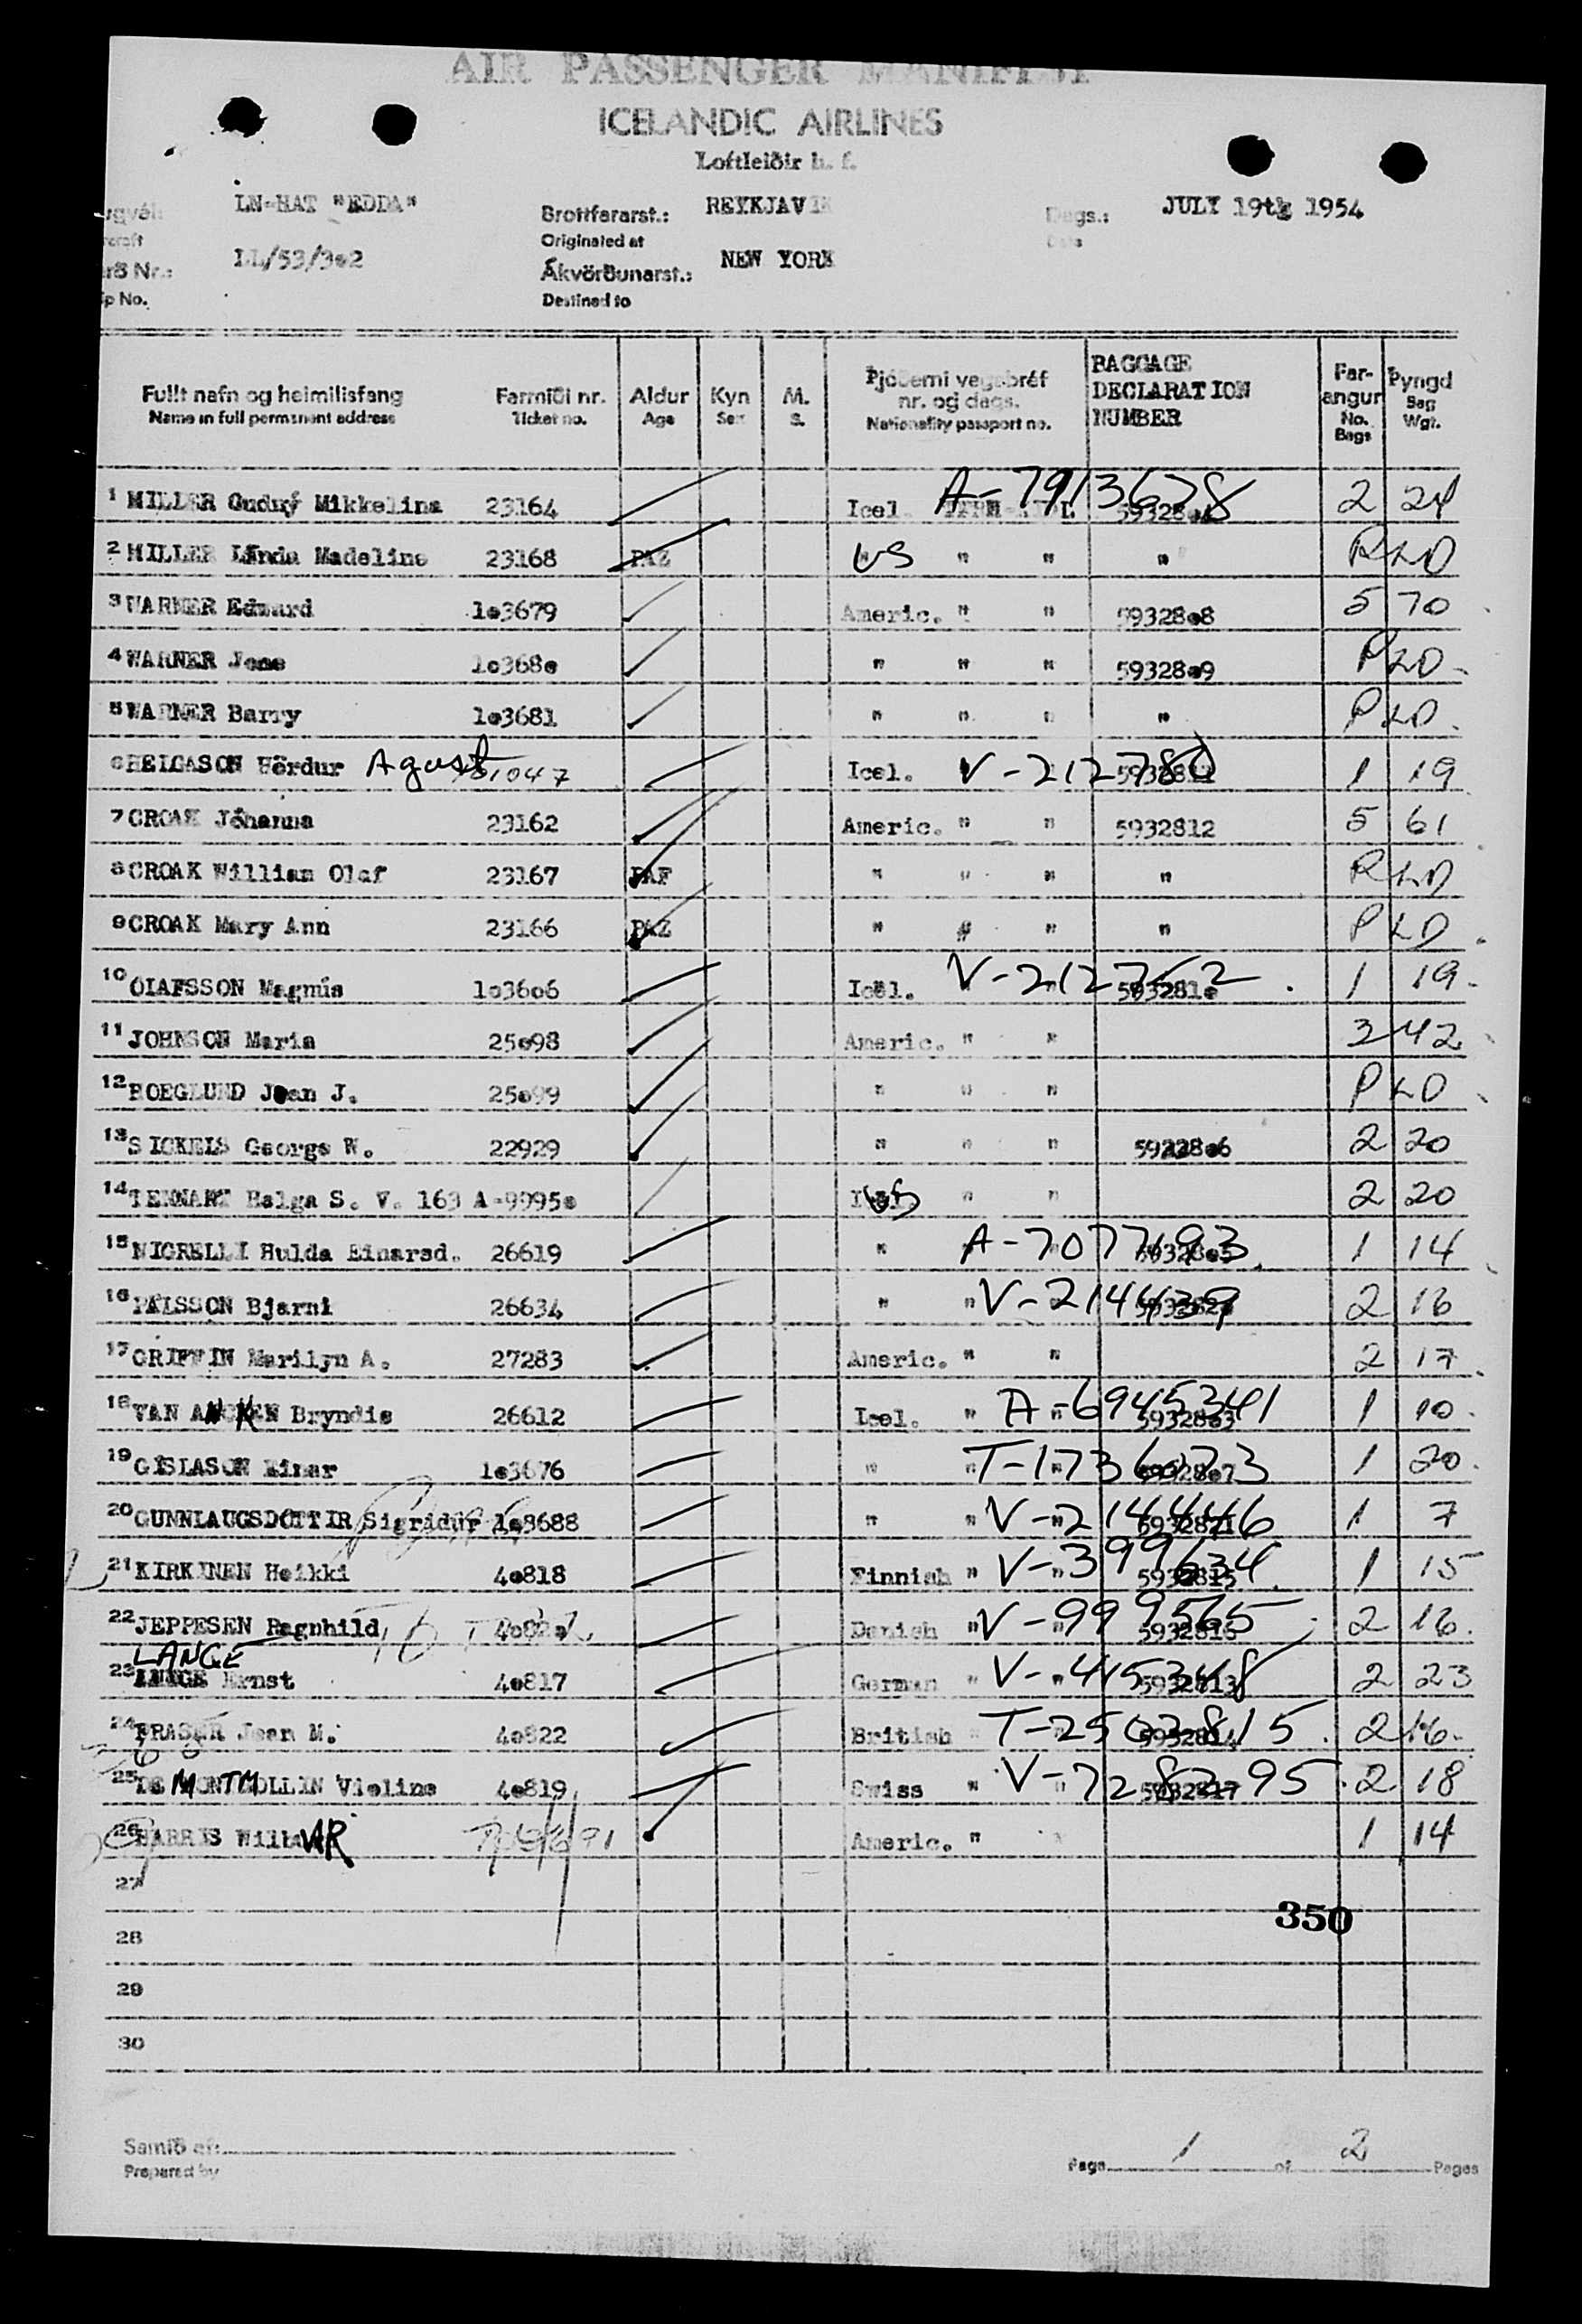 AIR PASSENGER MANIFEST
ICELANDIC AIRLINES
Loftleiðir h. f.
LN-HAT "EDDA" Brottfararst.: REYKJAVIK Dags.: JULY 19th 1954
Originated at Date
LL/53/3o2 Ákvörðunarst.: NEW YORK
Destined to
Fullt nafn og heimilisfang Farmiði nr. Aldur Kyn M. Þjóðerni vegabréf nr. og dags. BAGGAGE DECLARATION NUMBER Far-angur Þyngd
Name in full permanent address Ticket no. Age Sex S. Nationality passport no. No. Bags Bag Wgt.
1 MILLER Gudný Mikkelina 23164 Icel. A-7913678 2 24
2 MILLER Linda Madeline 23168 PAZ US " " "
3 WARNER Edward 1o3679 Americ. " " 59328o8 5 70
4 WARNER Jone 1o368o " " " 59328o9 PLD
5 WARNER Barry 1o3681 " " " " PLD
6 HELGASON Hördur Agust 51047 Icel. V-212780 5932811 1 19
7 CROAK Jóhanna 23162 Americ. " " 5932812 5 61
8 CROAK William Olaf 23167 PAF " " " "
9 CROAK Mary Ann 23166 PAZ " # " " PLD
10 OLAFSSON Magnús 1o36o6 Icel. V-212752 593281o 1 19
11 JOHNSON Maria 25o98 Americ. " " 3 42
12 HOEGLUND Jean J. 25o99 " " " PLD
13 SICKELS George W. 22929 " " " 59328o6 2 20
14 TENNANT Helga S. V. 163 A-9995o US " " 2 20
15 NIGRELLI Hulda Einarsd. 26619 " A-7077193 59328o5 1 14
16 PÁLSSON Bjarni 26634 " " V-214439 2 16
17 GRIFFIN Marilyn A. 27283 Americ. " " 2 17
18 VAN ANKEN Bryndis 26612 Icel. " A-6945341 59328o3 1 10
19 GISLASON Einar 1o3676 " " T-1736073 59328o7 1 20
20 GUNNLAUGSDÓTTIR Sigridur 1o3688 " " V-214446 5932821 1 7
21 KIRKINEN Heikki 4o818 Finnish " V-399634 5932815 1 15
22 JEPPESEN Ragnhild 4o82o Danish " V-999565 5932816 2 16
LANGE
23 Ernst 4o817 German " V-415348 5932813 2 23
24 FRASER Jean M. 4o822 British " T-2503815 5932814 2 16
25 DE MONTMOLLIN Violine 4o819 Swiss " V-728295 5932817 2 18
26 HARRIS Wilbur Americ. " " 1 14
27
350
28
29
30
Samið af:
Prepared by
Page 1 of 2 Pages